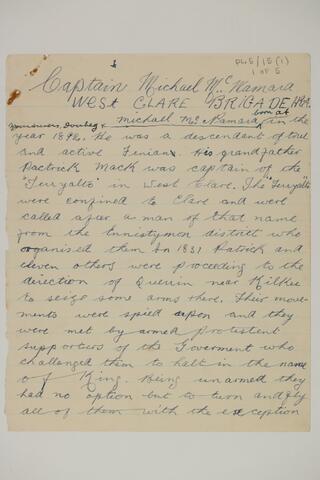 PL5/15(1)
1 of 5
Captain Michael Mc Namara
West Clare Brigade IRA
born at
Michael Mc Namara in the
year 1892. He was a descendent of true
and active Fenians. His grandfather
Pactrick Mack was captain of the
"Terryalts" in West Clare. The "Terryalts
were confined to Clare and were
called after a man of that name
from the Ennistymon district who
organised them. In 1831 Patrick and
eleven others were proceeding to the
direction of Querin near Kilkee
to seize some arms there. Their move-
ments were spied upon and they
were met by armed protestent
supporters of the Goverment who
challenged them to halt in the name
of King. Being unarmed they
had no option but to turn and fly
all of them with the exception